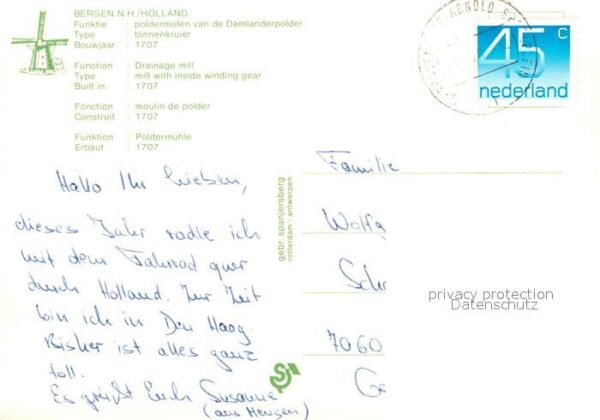 BERGEN N.H./HOLLAND
Funktie : poldermolen van de Damlanderpolder
Type : binnenkruier
Bouwjaar : 1707
Function : Drainage mill
Type : mill with inside winding gear
Built in : 1707
Fonction : moulin de polder
Construit : 1707
Funktion : Poldermühle
Erbaut : 1707
45 c
nederland
ARNOLD
Hallo Ihr Lieben,
dieses Jahr radle ich
mit dem Fahrrad quer
durch Holland. Zur Zeit
bin ich in Den Haag.
Bisher ist alles ganz
toll.
Es grüßt Euch Susanne
(aus Hengen)
gebr. spanjersberg
rotterdam - antwerpen
Familie
Wolfg
Schr
7060
privacy protection
Datenschutz